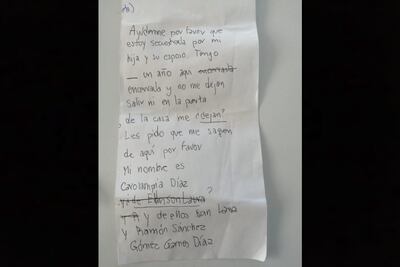 Ayúdenme por favor que
estoy secuestrada por mi
hija y su esposo. Tengo
_ un año aqui encerrada
encerrada y no me dejan
salir ni en la puerta
de la casa me dejan?
Les pido que me saquen
de aquí por favor
Mi nombre es
Díaz
y de ellos son
y Ramón Sánchez
Gómez Díaz